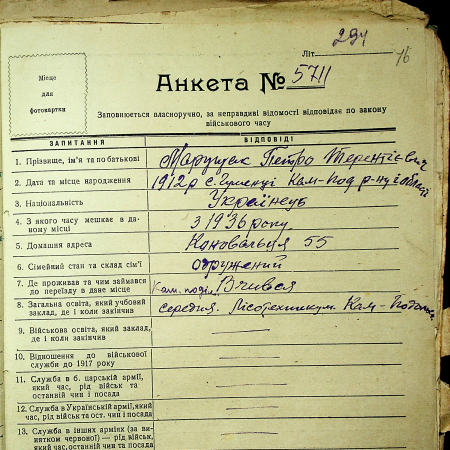 Літ. 291
16
Місце
для
фотокартки
Анкета № 5711
Заповнюється власноручно, за неправдиві відомості відповідає по закону
військового часу
ЗАПИТАННЯ ВІДПОВІДІ
1. Прізвище, ім'я та по батькові Петро Терентієвич
2. Дата та місце народження 1912 р с. Гуменці Кам-Под р-ну і області
3. Національність Українець
4. З якого часу мешкає в да-
ному місці з 1936 року
5. Домашня адреса Коновальця 55
6. Сімейний стан та склад сім'ї одружений
7. Де проживав та чим займався
до переїзду в дане місце Кам. поділ. Вчився
8. Загальна освіта, який учбовий
заклад, де і коли закінчив середня. Лісотехнікум. Кам-Подольск
9. Військова освіта, який заклад,
де і коли закінчив
10. Відношення до військової
служби до 1917 року
11. Служба в б. царській армії,
який час, рід військ та
останній чин і посада
12. Служба в Українській армії, який
час, рід військ та ост. чин і посада
13. Служба в інших арміях (за ви-
нятком червоної) — рід військ,
який час, останній чин та посада